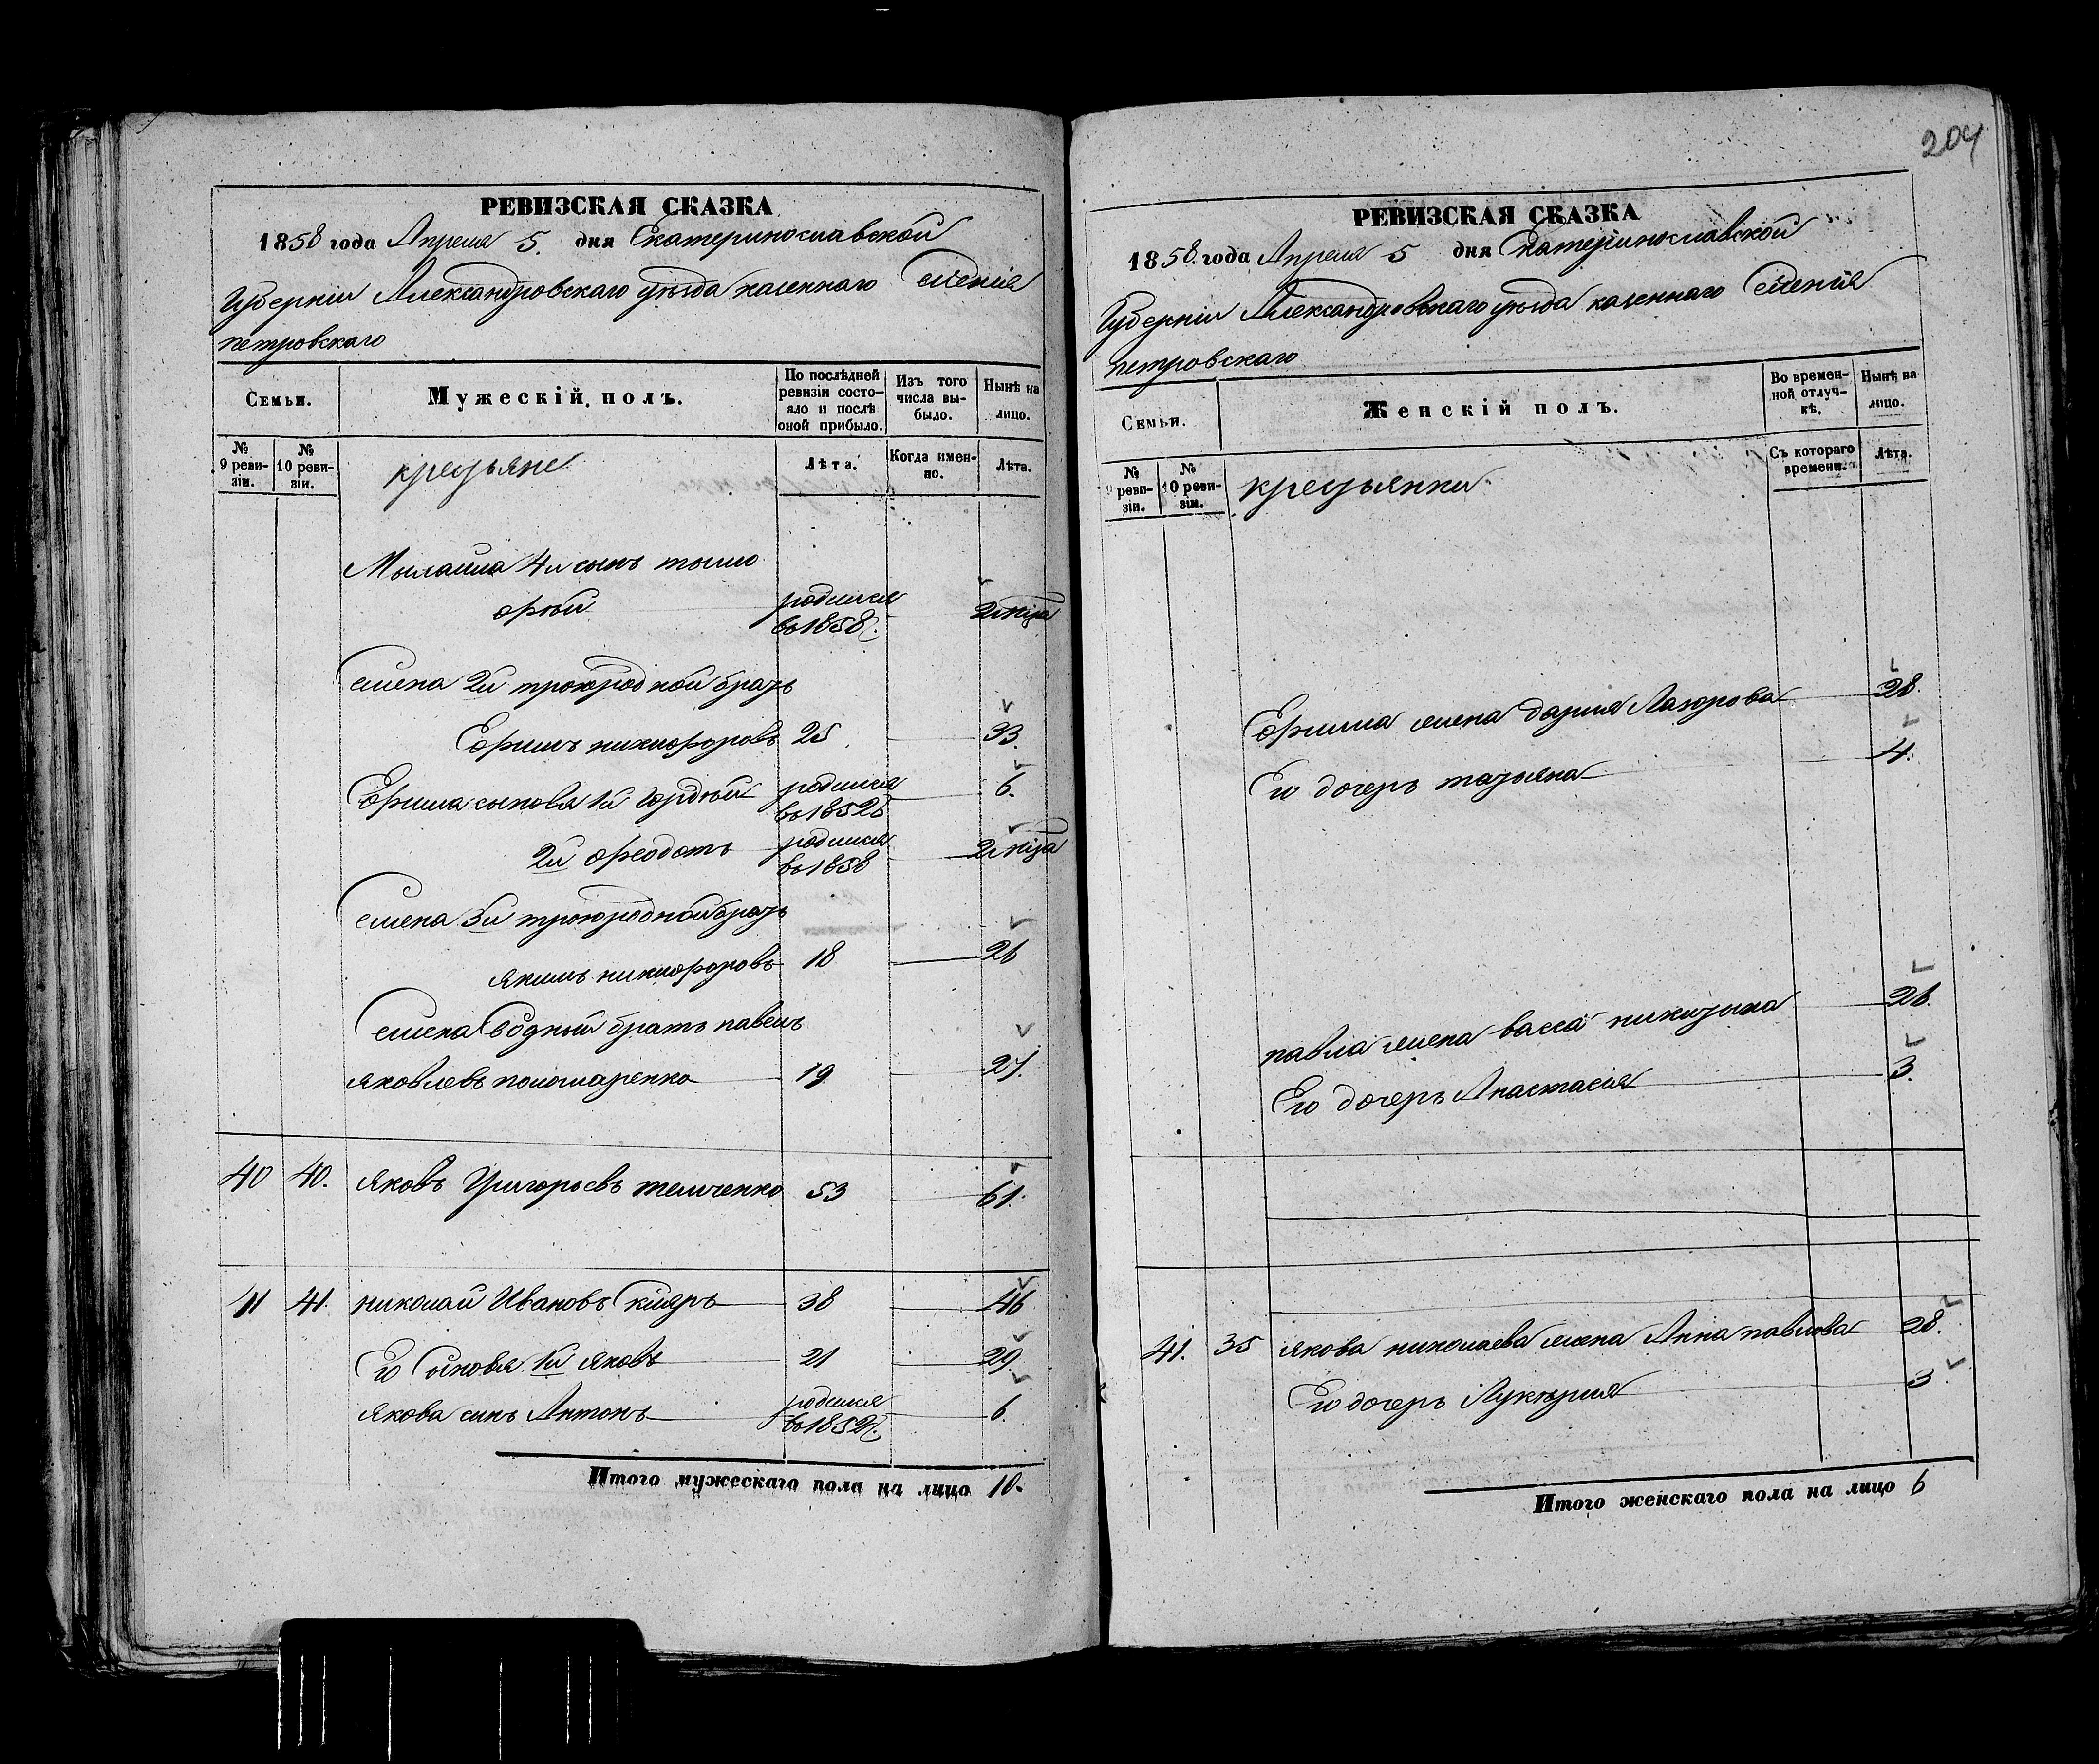 204
РЕВИЗСКАЯ СКАЗКА
1858 года Апреля 5. дня Екатеринославской
Губерніи Александровскаго уѣзда казеннаго Селенія
петровскаго
Семьи.
Мужескій полъ.
По послѣдней ревизіи состо-
яло и послѣ
оной прибыло.
Изъ того
числа вы-
было.
Нынѣ на
лицо.
№
9 реви-
зіи.
№
10 реви-
зіи.
крестьяне
Лѣта.
Когда имен-
но.
Лѣта.
4й сынъ тымо
офѣй родился во 1858г. 2 мѣца
Семена 2й троюродной братъ
Ефимъ никифоровъ 25 33.
Ефима сыновя 1й Гордѣй родился во 1852г 6.
2й Феодотъ родился во 1858 2 мѣца
Семена 3й троюродной братъ
якимъ никифоровъ 18 26
Семена Сводный братъ павелъ
яковлевъ пономаренко 19 27.
40 40. яковъ Григорьевъ темченко 53 61.
41 41. николай Ивановъ 38 46
Его Сыновя 1й яковъ 21 29.
якова синъ Антонъ родился во 1852г. 6
Итого мужескаго пола на лицо 10.
РЕВИЗСКАЯ СКАЗКА
1858. года Апреля 5 дня Екатеринославской
Губерніи Александровскаго уѣзда казеннаго Селенія
петровскаго
Семьи.
Женскій полъ.
Во времен-
ной отлуч-
кѣ.
Нынѣ на
лицо.
№
реви-
зіи.
№
10 реви-
зіи.
крестьянки
Съ котораго
времени.
Лѣта.
Ефима жена дария Лазорова 28.
Его дочеръ татьяна 4.
павла жена васса никитина 26.
Его дочеръ Анастасия 3.
41. 35 якова николаева жена Анна павлова 28.
Его дочеръ Лукерия 3
Итого женскаго пола на лицо 6